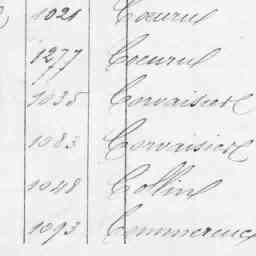 1021 Coeurul
1277 Coeurul
1035 Corvaisier
1083 Corvaisier
1048 Collin
1093 Commerenc